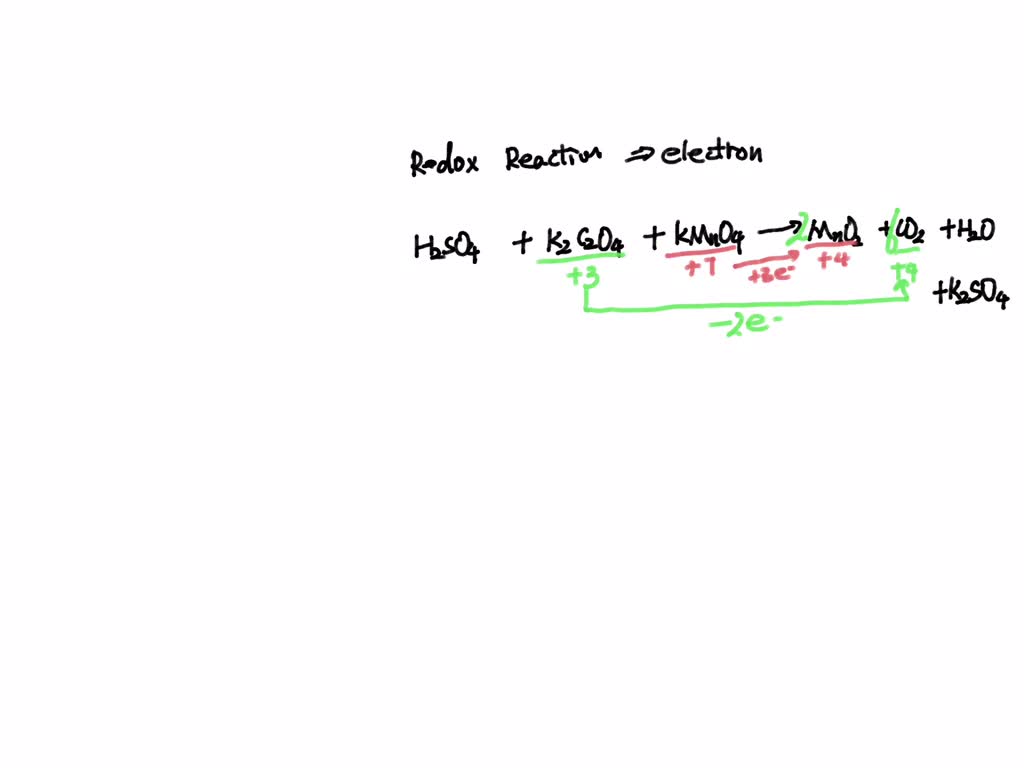 Redox Reaction ⇒ electron
H₂SO₄ + K₂C₂O₄ + KMnO₄ → 2MnO₂ + 6CO₂ + H₂O
+3 +7 +3e⁻ +4 +4
+K₂SO₄
-2e⁻